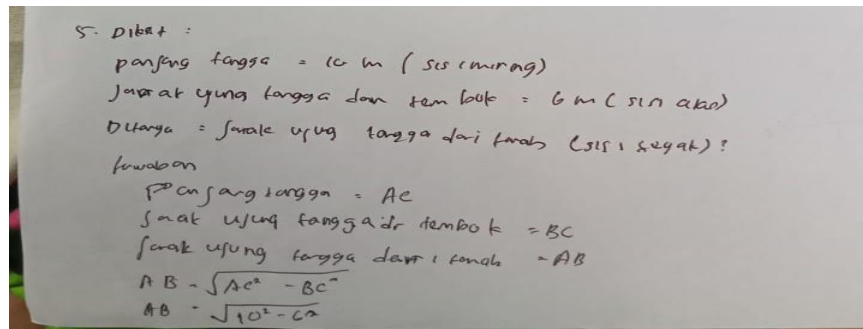 5. Diket :
panjang tangga = 10 m (sisi miring)
Jarak ujung tangga dan tembok = 6 m (sisi alas)
Ditanya = Jarak ujung tangga dari tanah (sisi tegak)?
Jawaban
Panjang tangga = AC
Jarak ujung tangga dr tembok = BC
Jarak ujung tangga dari tanah = AB
AB = √AC² - BC²
AB = √10² - 6²